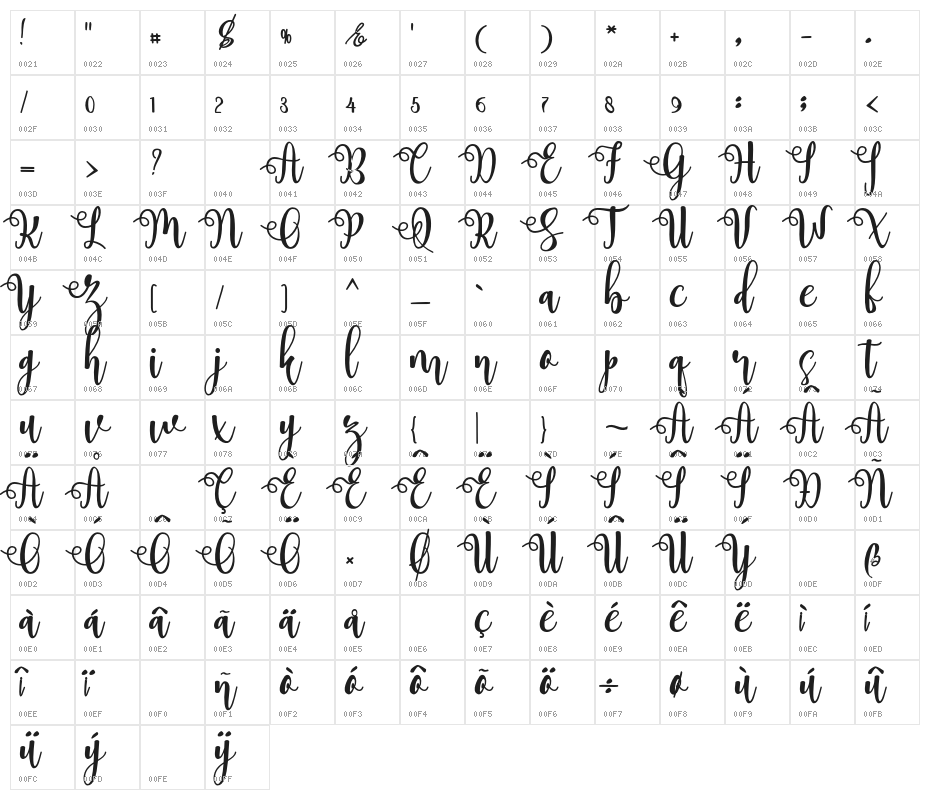 ! " # $ % & ' ( ) * + , - .
0021 0022 0023 0024 0025 0026 0027 0028 0029 002A 002B 002C 002D 002E
/ 0 1 2 3 4 5 6 7 8 9 : ; <
002F 0030 0031 0032 0033 0034 0035 0036 0037 0038 0039 003A 003B 003C
= > ? A B C D E F G H I J
003D 003E 003F 0040 0041 0042 0043 0044 0045 0046 0047 0048 0049 004A
K L M N O P Q R S T U V W X
004B 004C 004D 004E 004F 0050 0051 0052 0053 0054 0055 0056 0057 0058
Y Z [ / ] ^ _ ` a b c d e f
0059 005A 005B 005C 005D 005E 005F 0060 0061 0062 0063 0064 0065 0066
g h i j k l m n o p q r s t
0067 0068 0069 006A 006B 006C 006D 006E 006F 0070 0071 0072 0073 0074
u v w x y z { | } ~ À Á Â Ã
0075 0076 0077 0078 0079 007A 007B 007C 007D 007E 00C0 00C1 00C2 00C3
Ä Å Ç È É Ê Ë Ì Í Î Ï Ð Ñ
00C4 00C5 00C6 00C7 00C8 00C9 00CA 00CB 00CC 00CD 00CE 00CF 00D0 00D1
Ò Ó Ô Õ Ö × Ø Ù Ú Û Ü Ý ß
00D2 00D3 00D4 00D5 00D6 00D7 00D8 00D9 00DA 00DB 00DC 00DD 00DE 00DF
à á â ã ä å ç è é ê ë ì í
00E0 00E1 00E2 00E3 00E4 00E5 00E6 00E7 00E8 00E9 00EA 00EB 00EC 00ED
î ï ñ ò ó ô õ ö ÷ ø ù ú û
00EE 00EF 00F0 00F1 00F2 00F3 00F4 00F5 00F6 00F7 00F8 00F9 00FA 00FB
ü ý ÿ
00FC 00FD 00FE 00FF